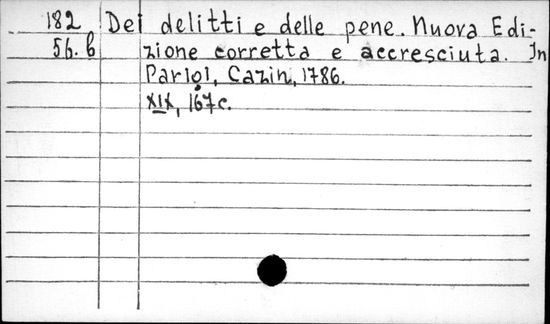 182 Dei delitti e delle pene. Nuova Edi-
56.b zione corretta e accresciuta. In
Parigi, Cazin, 1786.
XIX, 167c.